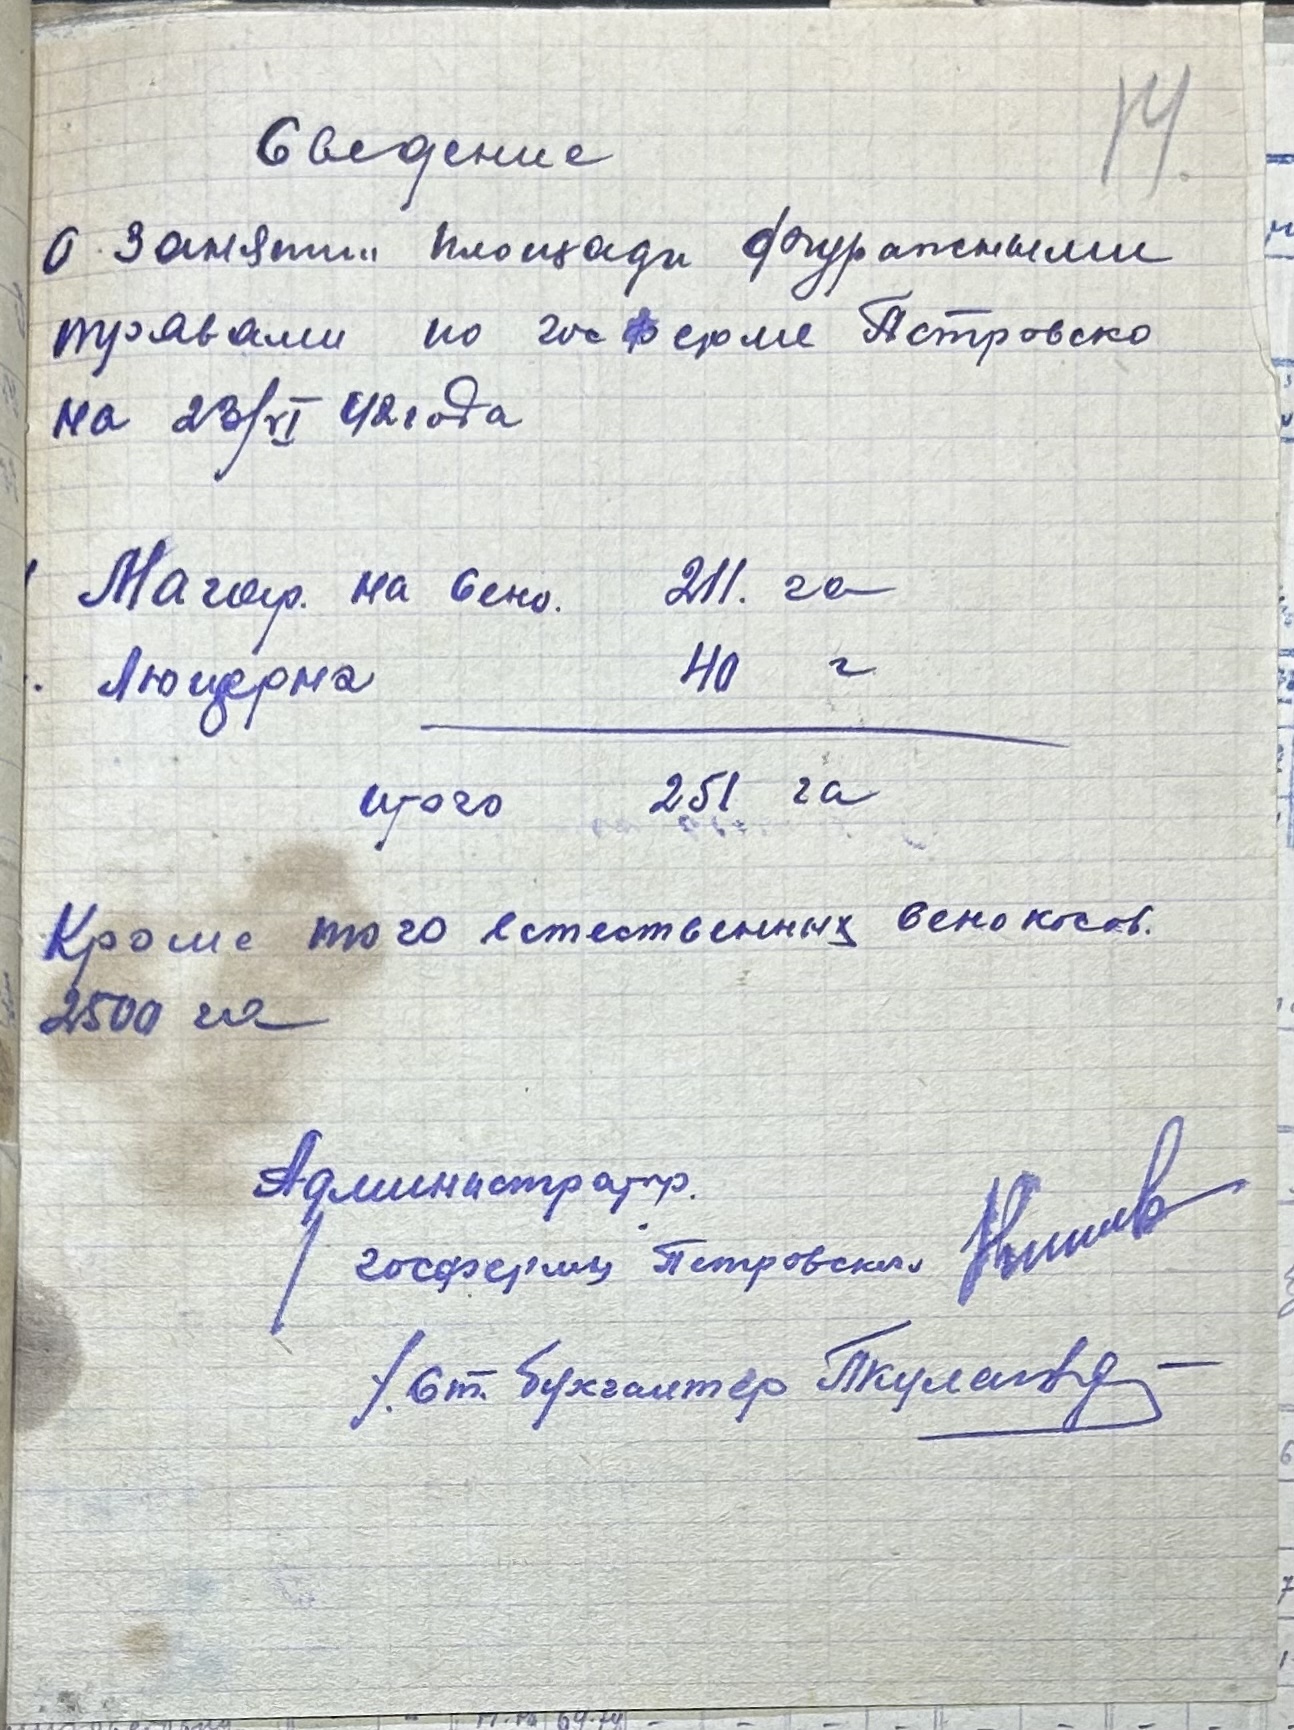 14.
Сведение
О Занятии площади фуражными
травами по госферме Петровско
на 23/VI 42 года
Магар. на сено. 211. га
Люцерна 40 г
итого 251 га
Кроме того естественных сенокосов.
2500 га
Администратр.
госфермы Петровская
Ст. бухгалтер